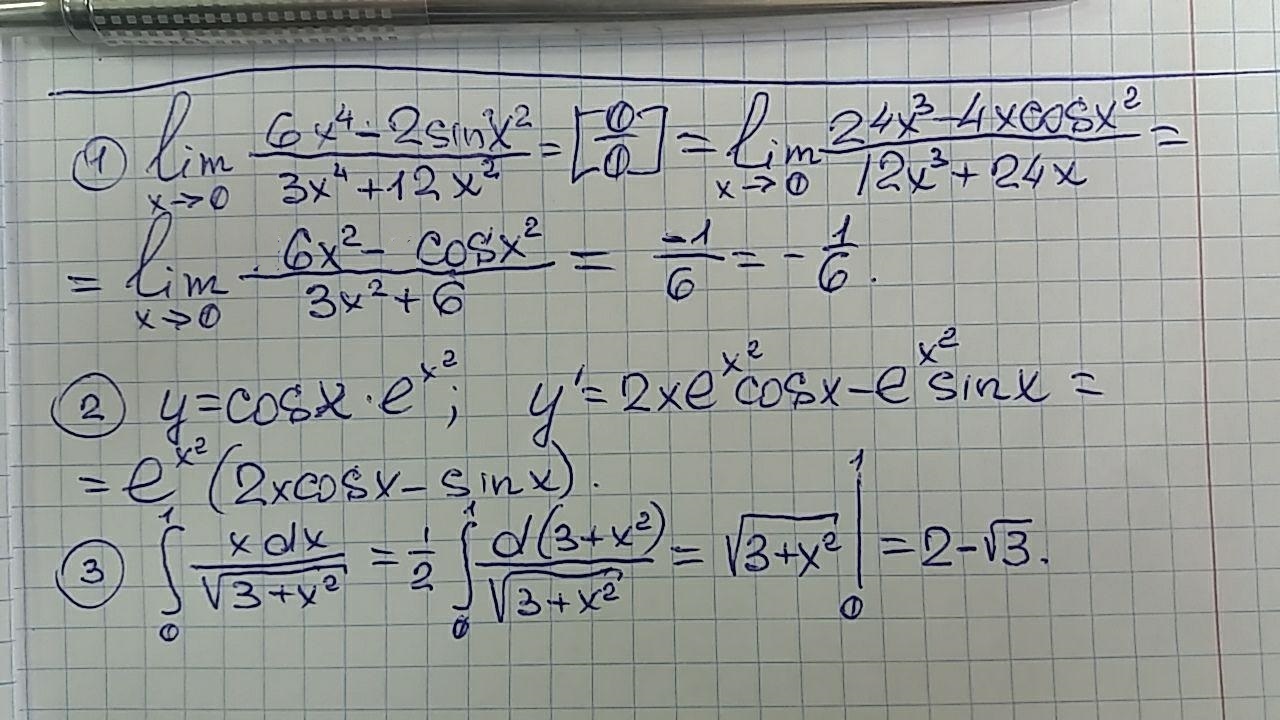 ① lim_{x→0} (6x⁴ - 2sinx²)/(3x⁴ + 12x²) = [0/0] = lim_{x→0} (24x³ - 4xcosx²)/(12x³ + 24x) =
= lim_{x→0} (6x² - cosx²)/(3x² + 6) = -1/6 = -1/6.
② y = cosx · e^{x²}; y' = 2xe^{x²}cosx - e^{x²}sinx =
= e^{x²}(2xcosx - sinx).
③ ∫₀¹ xdx/√(3+x²) = 1/2 ∫₀¹ d(3+x²)/√(3+x²) = √(3+x²) |₀¹ = 2 - √3.